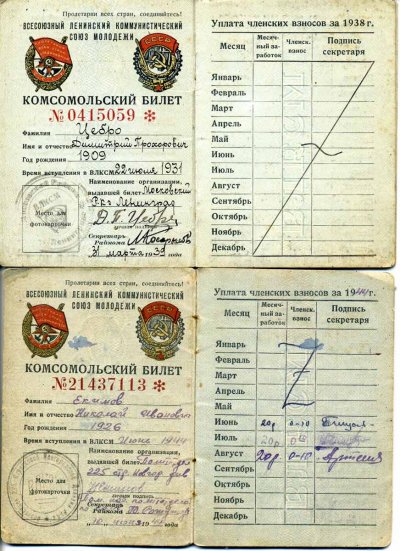 Пролетарии всех стран, соединяйтесь!
ВСЕСОЮЗНЫЙ ЛЕНИНСКИЙ КОММУНИСТИЧЕСКИЙ
СОЮЗ МОЛОДЕЖИ
КОМСОМОЛЬСКИЙ БИЛЕТ
№ 0415059
Фамилия Цебро
Имя и отчество Димитрий Прохорович
Год рождения 1909
Время вступления в ВЛКСМ 22 июня 1931
Наименование организации,
выдавшей билет Московский
Рк г. Ленинград
Место для
фотокарточки
Секретарь
Райкома
31 марта 1939 года
Уплата членских взносов за 1938 г.
Месяц
Месячный заработок
Членск. взнос
Подпись секретаря
Январь
Февраль
Март
Апрель
Май
Июнь
Июль
Август
Сентябрь
Октябрь
Ноябрь
Декабрь
Пролетарии всех стран, соединяйтесь!
ВСЕСОЮЗНЫЙ ЛЕНИНСКИЙ КОММУНИСТИЧЕСКИЙ
СОЮЗ МОЛОДЕЖИ
КОМСОМОЛЬСКИЙ БИЛЕТ
№ 21437113
Фамилия Екимов
Имя и отчество Николай Иванович
Год рождения 1926
Время вступления в ВЛКСМ Июнь 1944
Наименование организации,
выдавшей билет
225 стр.
Место для
фотокарточки
личная подпись
Секретарь
Райкома
10 июня 1944 года
Уплата членских взносов за 1944 г.
Месяц
Месячный заработок
Членск. взнос
Подпись секретаря
Январь
Февраль
Март
Апрель
Май
Июнь 20р 0-10
Июль 20р
Август 20р 0-10
Сентябрь
Октябрь
Ноябрь
Декабрь